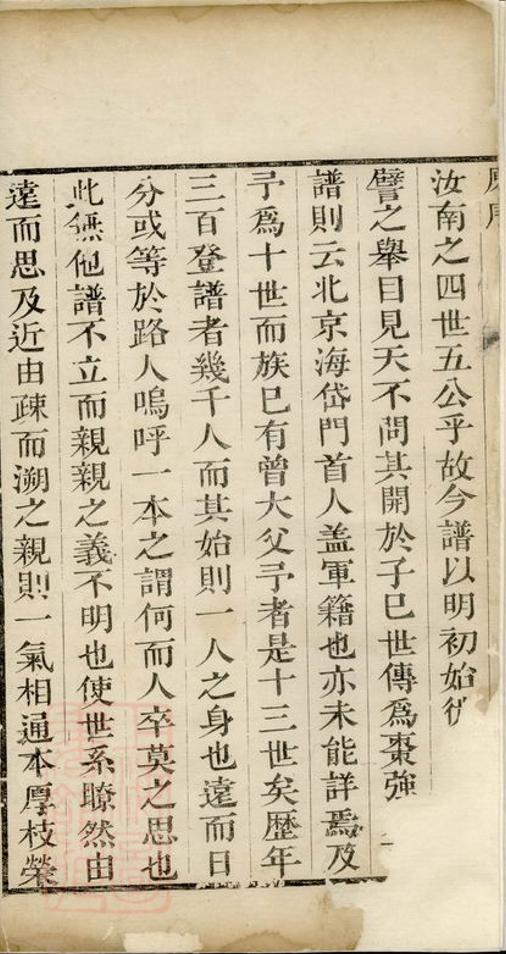 汝南之四世五公乎故今譜以明初始
譬之舉目見天不問其開於子巳世傳為棗強
譜則云北京海岱門首人盖軍籍也亦未能詳焉及
予為十世而族已有曾大父予者是十三世矣歴年
三百登譜者幾千人而其始則一人之身也遠而日
分或等於路人嗚呼一本之謂何而人卒莫之思也
此無他譜不立而親親之義不明也使世系瞭然由
遠而思及近由疎而溯之親則一氣相通本厚枝榮